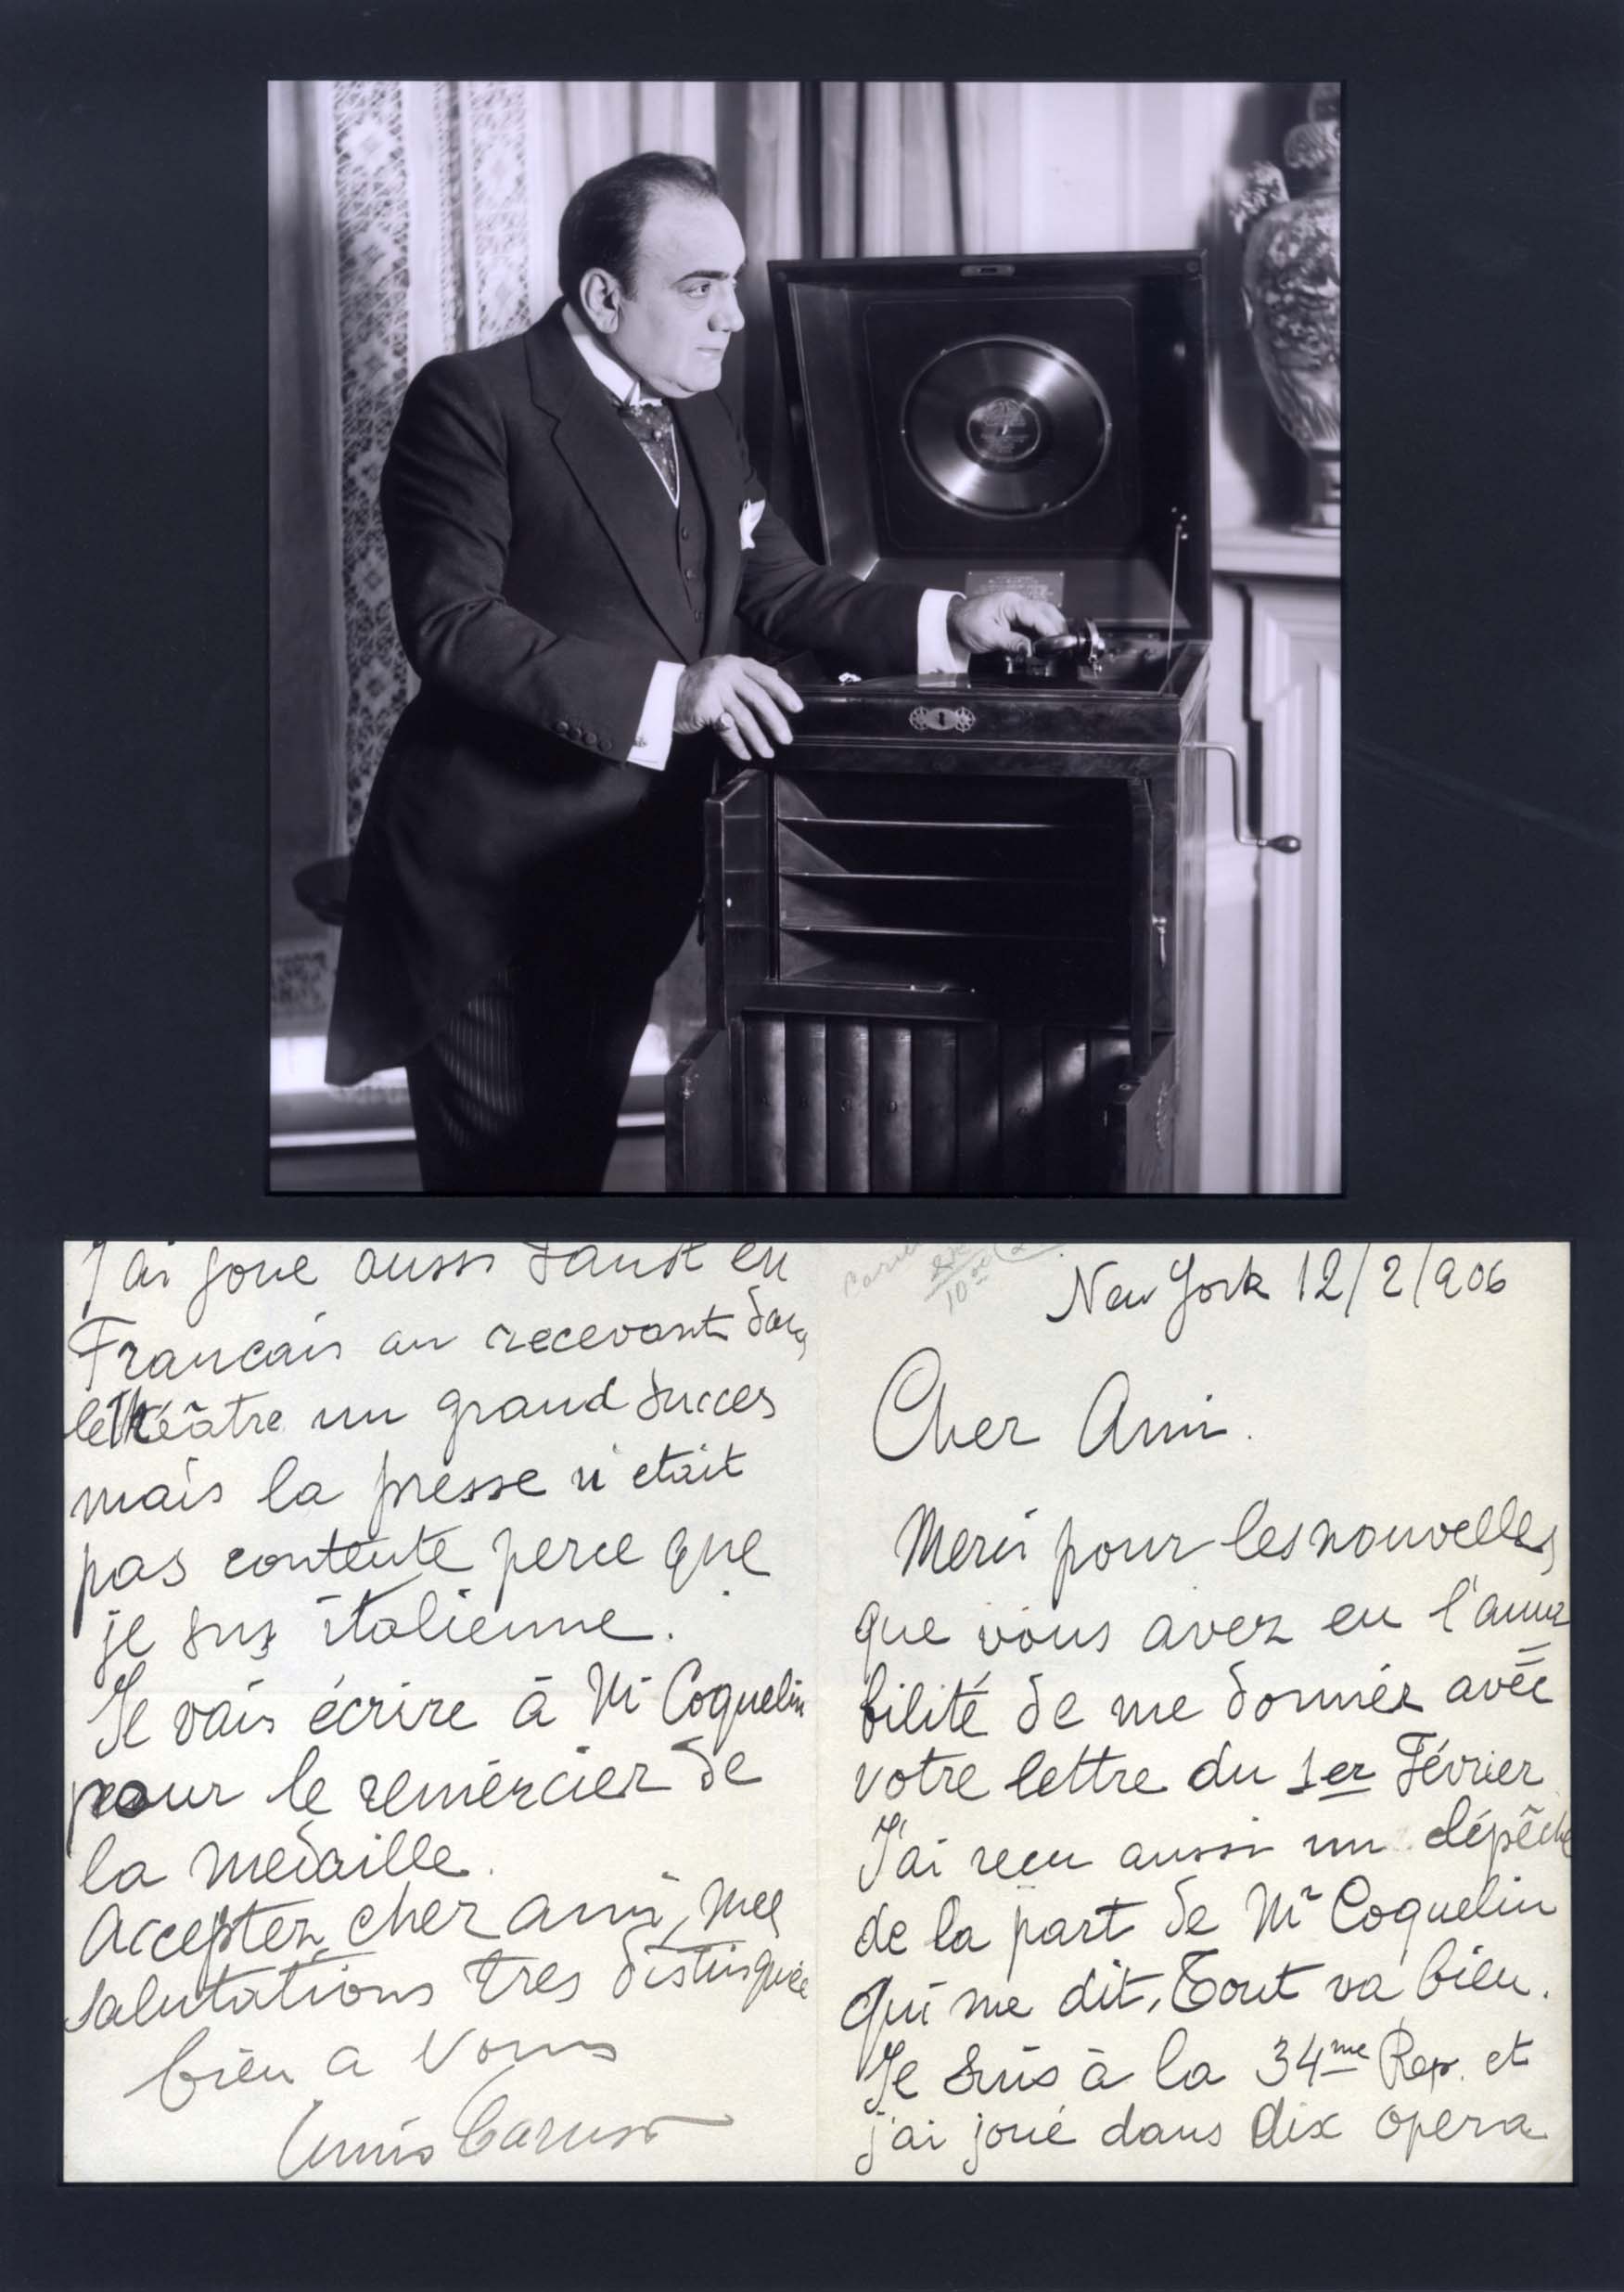 New York 12/2/906
Cher Ami.
Merci pour les nouvelles
que vous avez eu l'ama
bilité de me donnér avéc
votre lettre du 1er Février
J'ai reçu aussi un dépêche
de la part de Mr Coquelin
qui me dit, Tout va bien.
Je suis à la 34me Rep. et
j'ai joué dans dix opera
J'ai joue aussi Faust en
Francais an recevant dans
le théâtre un grand succes
mais la presse n'etait
pas contente perce que
je sus italienne.
Je vais écrire à Mr Coquelin
pour le remércier de
la medaille.
Acceptez cher ami, mes
salutations tres distinguée
bien a vous
Enrico Caruso